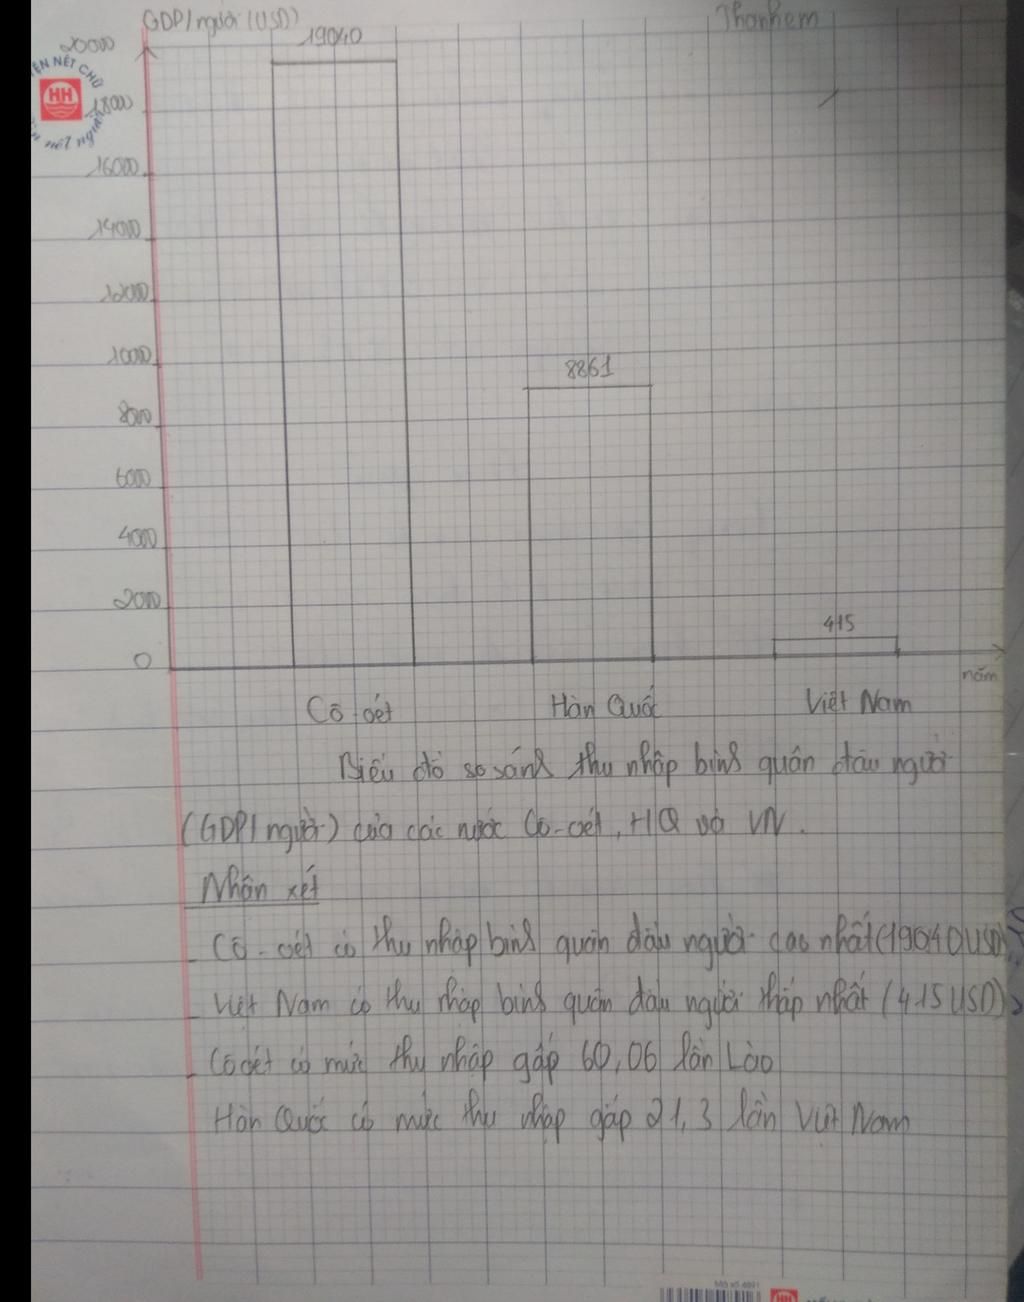 GDP/người (USD)
Thanhem
19040
20000
18000
16000
14000
12000
10000
8861
8000
6000
4000
2000
415
0
năm
Cô-oét Hàn Quốc Việt Nam
Biểu đồ so sánh thu nhập bình quân đầu người
(GDP/người) của các nước Cô-oét, HQ và VN.
Nhận xét
- Cô-oét có thu nhập bình quân đầu người cao nhất (19040USD)
- Việt Nam có thu nhập bình quân đầu người thấp nhất (415USD)
- Cô oét có mức thu nhập gấp 60,06 lần Lào
Hàn Quốc có mức thu nhập gấp 21,3 lần Việt Nam
HH